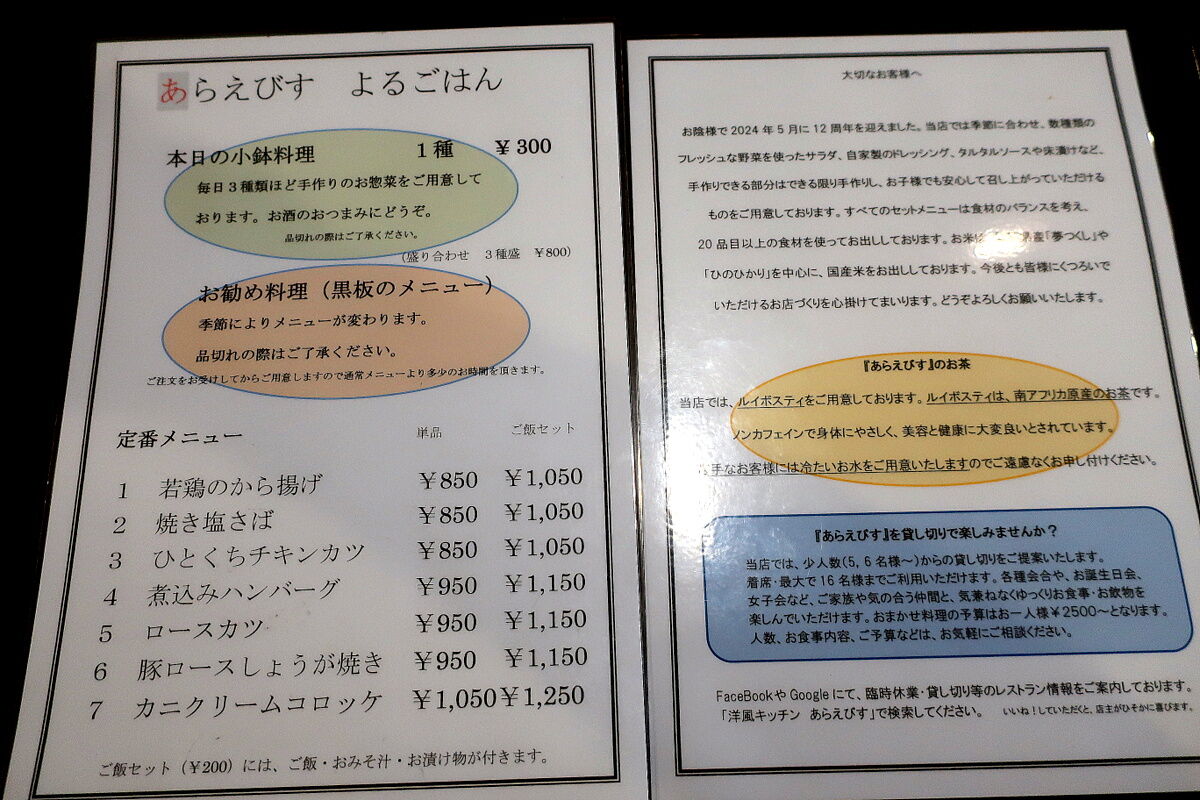 あらえびす　よるごはん
本日の小鉢料理　1種　¥300
毎日3種類ほど手作りのお惣菜をご用意して
おります。お酒のおつまみにどうぞ。
品切れの際はご了承ください。
（盛り合わせ　3種盛　¥800）
お勧め料理（黒板のメニュー）
季節によりメニューが変わります。
品切れの際はご了承ください。
ご注文をお受けしてからご用意しますので通常メニューより多少のお時間を頂きます。
定番メニュー　単品　ご飯セット
1　若鶏のから揚げ　¥850　¥1,050
2　焼き塩さば　¥850　¥1,050
3　ひとくちチキンカツ　¥850　¥1,050
4　煮込みハンバーグ　¥950　¥1,150
5　ロースカツ　¥950　¥1,150
6　豚ロースしょうが焼き　¥950　¥1,150
7　カニクリームコロッケ　¥1,050　¥1,250
ご飯セット（¥200）には、ご飯・おみそ汁・お漬け物が付きます。
大切なお客様へ
お陰様で2024年5月に12周年を迎えました。当店では季節に合わせ、数種類の
フレッシュな野菜を使ったサラダ、自家製のドレッシング、タルタルソースや床漬けなど、
手作りできる部分はできる限り手作りし、お子様でも安心して召し上がっていただける
ものをご用意しております。すべてのセットメニューは食材のバランスを考え、
20品目以上の食材を使ってお出ししております。お米は 県産「夢つくし」や
「ひのひかり」を中心に、国産米をお出ししております。今後とも皆様にくつろいで
いただけるお店づくりを心掛けてまいります。どうぞよろしくお願いいたします。
『あらえびす』のお茶
当店では、ルイボスティをご用意しております。ルイボスティは、南アフリカ原産のお茶です。
ノンカフェインで身体にやさしく、美容と健康に大変良いとされています。
手なお客様には冷たいお水をご用意いたしますのでご遠慮なくお申し付けください。
『あらえびす』を貸し切りで楽しみませんか？
当店では、少人数（5，6名様～）からの貸し切りをご提案いたします。
着席・最大で16名様までご利用いただけます。各種会合や、お誕生日会、
女子会など、ご家族や気の合う仲間と、気兼ねなくゆっくりお食事・お飲物を
楽しんでいただけます。おまかせ料理の予算はお一人様¥2500～となります。
人数、お食事内容、ご予算などは、お気軽にご相談ください。
FaceBookやGoogleにて、臨時休業・貸し切り等のレストラン情報をご案内しております。
「洋風キッチン　あらえびす」で検索してください。　いいね！していただくと、店主がひそかに喜びます。